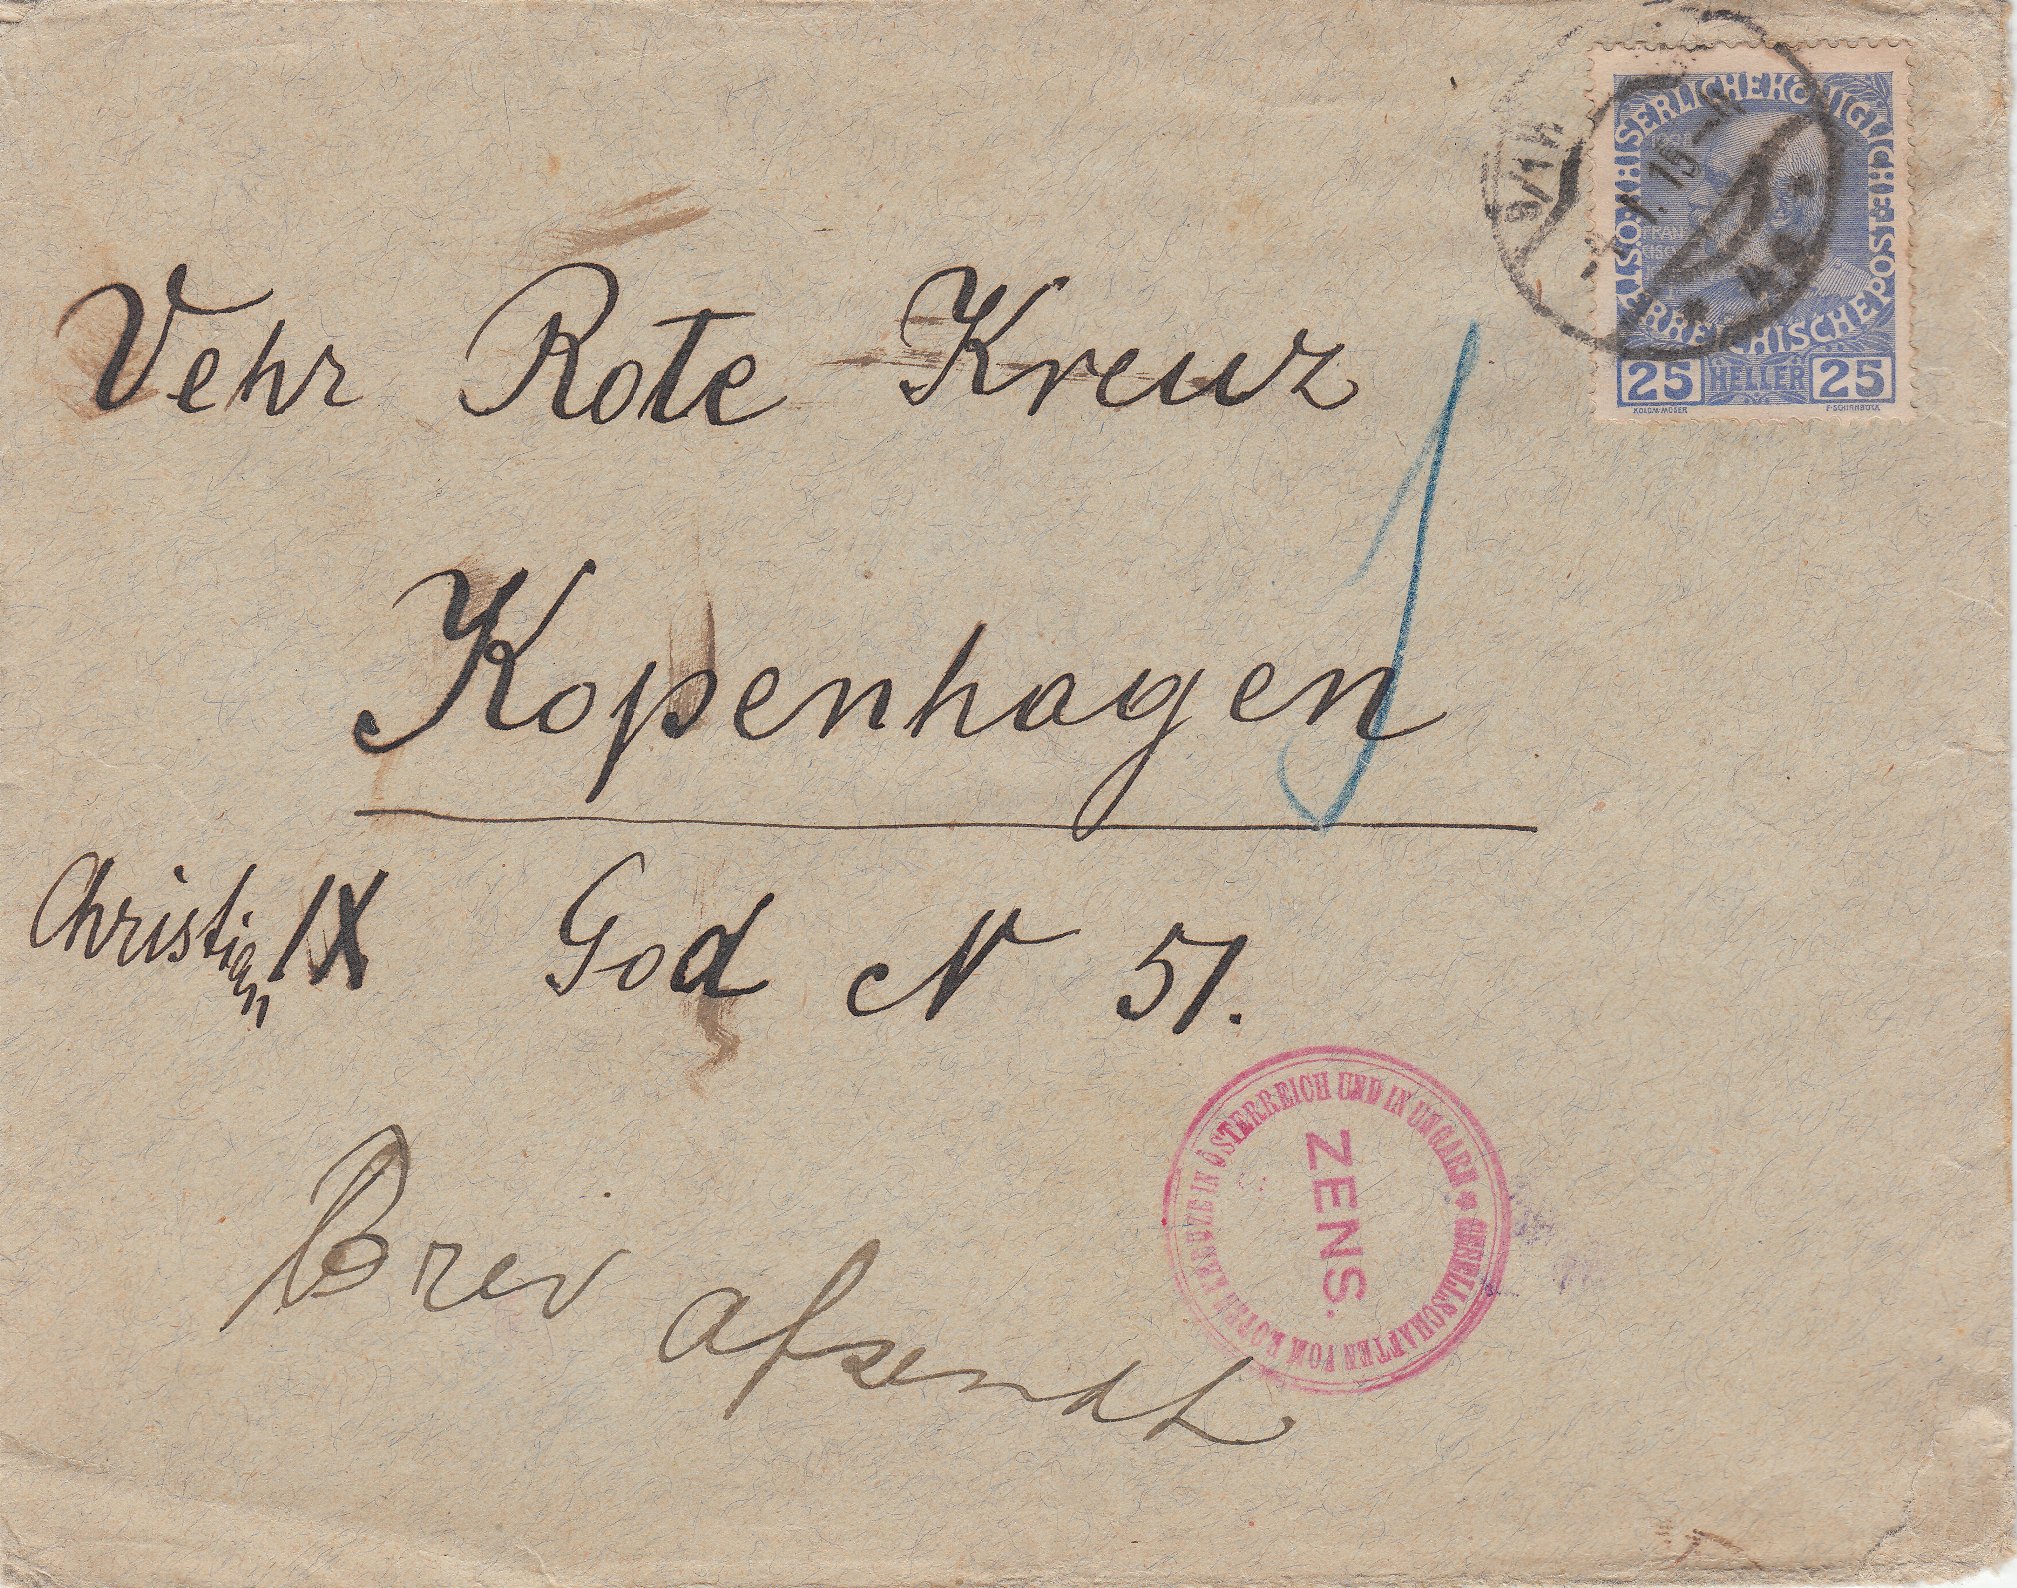 KAISERLICHE KÖNIGLICHE
ÖSTERREICHISCHE POST
FRANZ
25 HELLER 25
KOLO.MOSER F.SCHIRNBÖCK
Vehr Rote Kreuz
Kopenhagen
Christian IX God N 51.
GESELLSCHAFTEN VOM ROTEN KREUZE IN ÖSTERREICH UND IN UNGARN
ZENS.
Brev afsendt